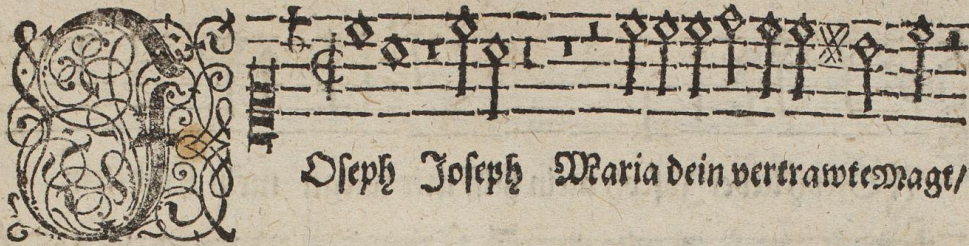 JOseph Joseph Maria dein vertrawte Magt/